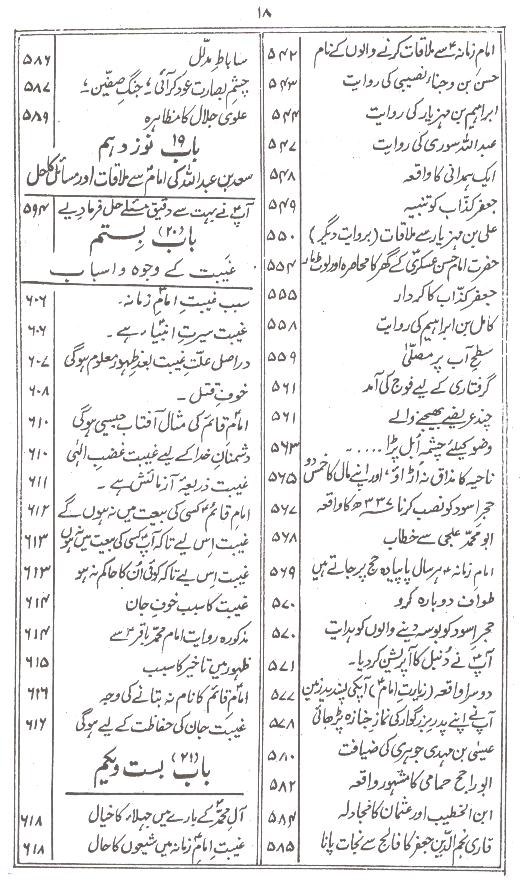 ۱۸
امام زمانہؑ سے ملاقات کرنے والوں کے نام ۵۴۲
حسن بن وجناء نصیبی کی روایت ۵۴۳
ابراہیم بن مہزیار کی روایت ۵۴۴
عبداللہ سوری کی روایت ۵۴۷
ایک ہمدانی کا واقعہ ۵۴۸
جعفر کذّاب کو تنبیہ ۵۴۹
علی بن مہزیار سے ملاقات (بروایت دیگر) ۵۵۰
حضرت امام حسن عسکریؑ کے گھر کا محاصرہ اور لوٹ مار ۵۵۴
جعفر کذّاب کا کردار ۵۵۵
کامل بن ابراہیم کی روایت ۵۵۸
سطحِ آب پر مصلّٰی ۵۵۹
گرفتاری کے لیے فوج کی آمد ۵۶۱
چند عریضے بھیجنے والے ۵۶۱
وضو کیلئے چشمہ اُبل پڑا ..... ۵۶۳
ناحیہ کا مذاق نہ اڑاؤ، اور اپنے مال کا خمس دو ۵۶۵
حجرِ اسود کو نصب کرنا ۳۳۷ھ کا واقعہ ۵۶۷
ابو محمد علجی سے خطاب ۵۶۸
امام زمانہؑ ہر سال پا پیادہ حج پر جاتے ہیں ۵۶۹
طواف دوبارہ کرو ۵۷۰
حجرِ اسود کو بوسہ دینے والوں کو ہدایت ۵۷۰
آپؑ نے دُنبل کا آپریشن کر دیا۔ ۵۷۱
دوسرا واقعہ (زیارتِ امامؑ) آپکی پسندیدہ زمین ۵۷۷
آپؑ نے اپنے پدرِ بزرگوار کی نمازِ جنازہ پڑھائی ۵۷۸
عیسٰی بن مہدی جوہری کی ضیافت ۵۸۰
ابو راجح حمامی کا مشہور واقعہ ۵۸۲
ابن الخطیب اور عثمان کا مجادلہ ۵۸۴
قاری نجم الدّین جعفر کا فالج سے نجات پانا ۵۸۵
ساباطِ مدلّل ۵۸۶
چشمِ بصارت عود کر آئی؛ جنگِ صفین؛ ۵۸۷
علوی جلال کا مظاہرہ ۵۸۹
باب ۱۹ نوزدہم
سعد بن عبداللہ کی امامؑ سے ملاقات اور مسائل کا حل
آپؑ نے بہت سے دقیق مسئلے حل فرما دیے ۵۹۴
باب (۲۰) بستم
غیبت کے وجوہ و اسباب
سببِ غیبتِ امامِ زمانہ۔ ۶۰۶
غیبت سیرتِ انبیاء ہے۔ ۶۰۶
دراصل علّتِ غیبت بعدِ ظہور معلوم ہوگی ۶۰۷
خوفِ قتل۔ ۶۰۸
امام قائمؑ کی مثال آفتاب جیسی ہوگی ۶۱۰
دشمنانِ خدا کے لیے غیبت غضبِ الٰہی ۶۱۰
غیبت ذریعۂ آزمائش ہے۔ ۶۱۱
امام قائمؑ کسی کی بیعت میں نہ ہوں گے ۶۱۲
غیبت اس لیے تاکہ آپؑ کسی کی بیعت میں نہ ہوں ۶۱۳
غیبت اس لیے تاکہ کوئی اُن کا حاکم نہ ہو ۶۱۳
غیبت کا سبب خوفِ جان ۶۱۴
مذکورہ روایت امام محمد باقرؑ سے ۶۱۴
ظہور میں تاخیر کا سبب ۶۱۵
امام قائمؑ کا نام نہ بتانے کی وجہ ۶۱۶
غیبت جان کی حفاظت کے لیے ہوگی ۶۱۶
باب (۲۱) بست و یکم
آلِ محمدؑ کے بارے میں جہلاء کا خیال ۶۱۸
غیبتِ امامؑ زمانہ میں شیعوں کا حال ۶۱۸